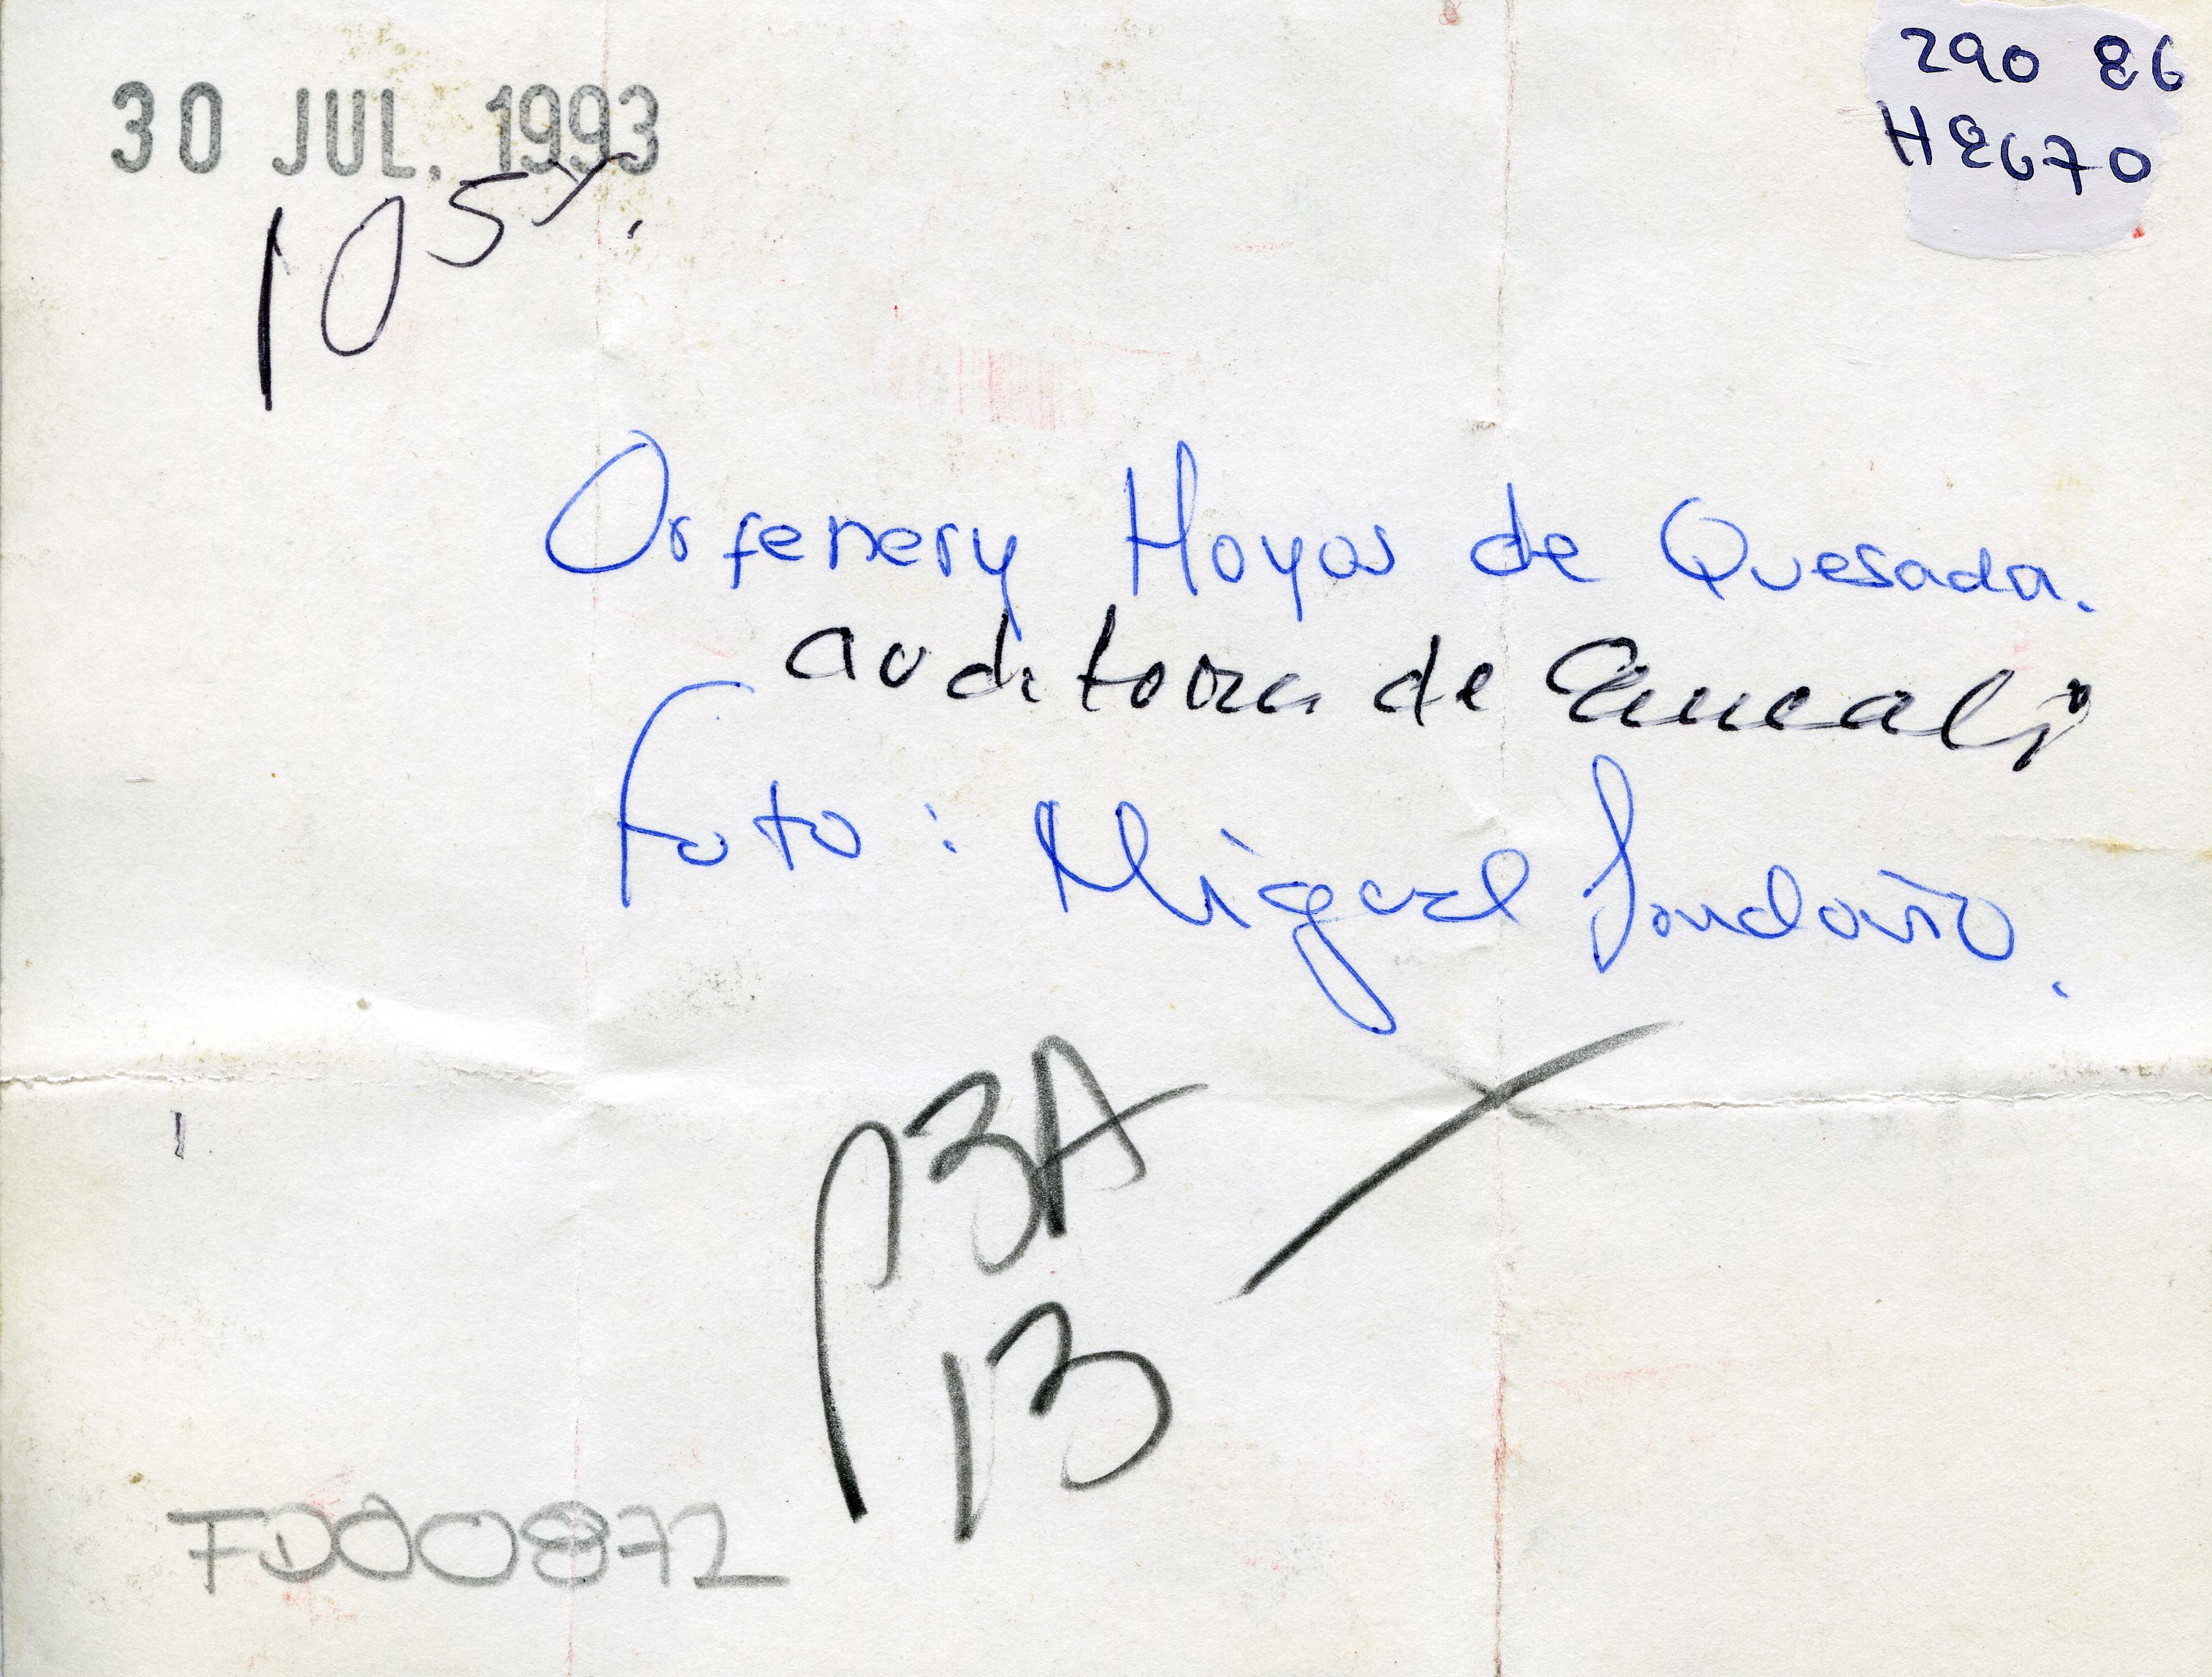 30 JUL. 1993
290 86
H8670
10 5
Orfenery Hoyos de Quesada.
auditora de Emcali
Foto: Miguel Londoño.
P3A
13
FD00872